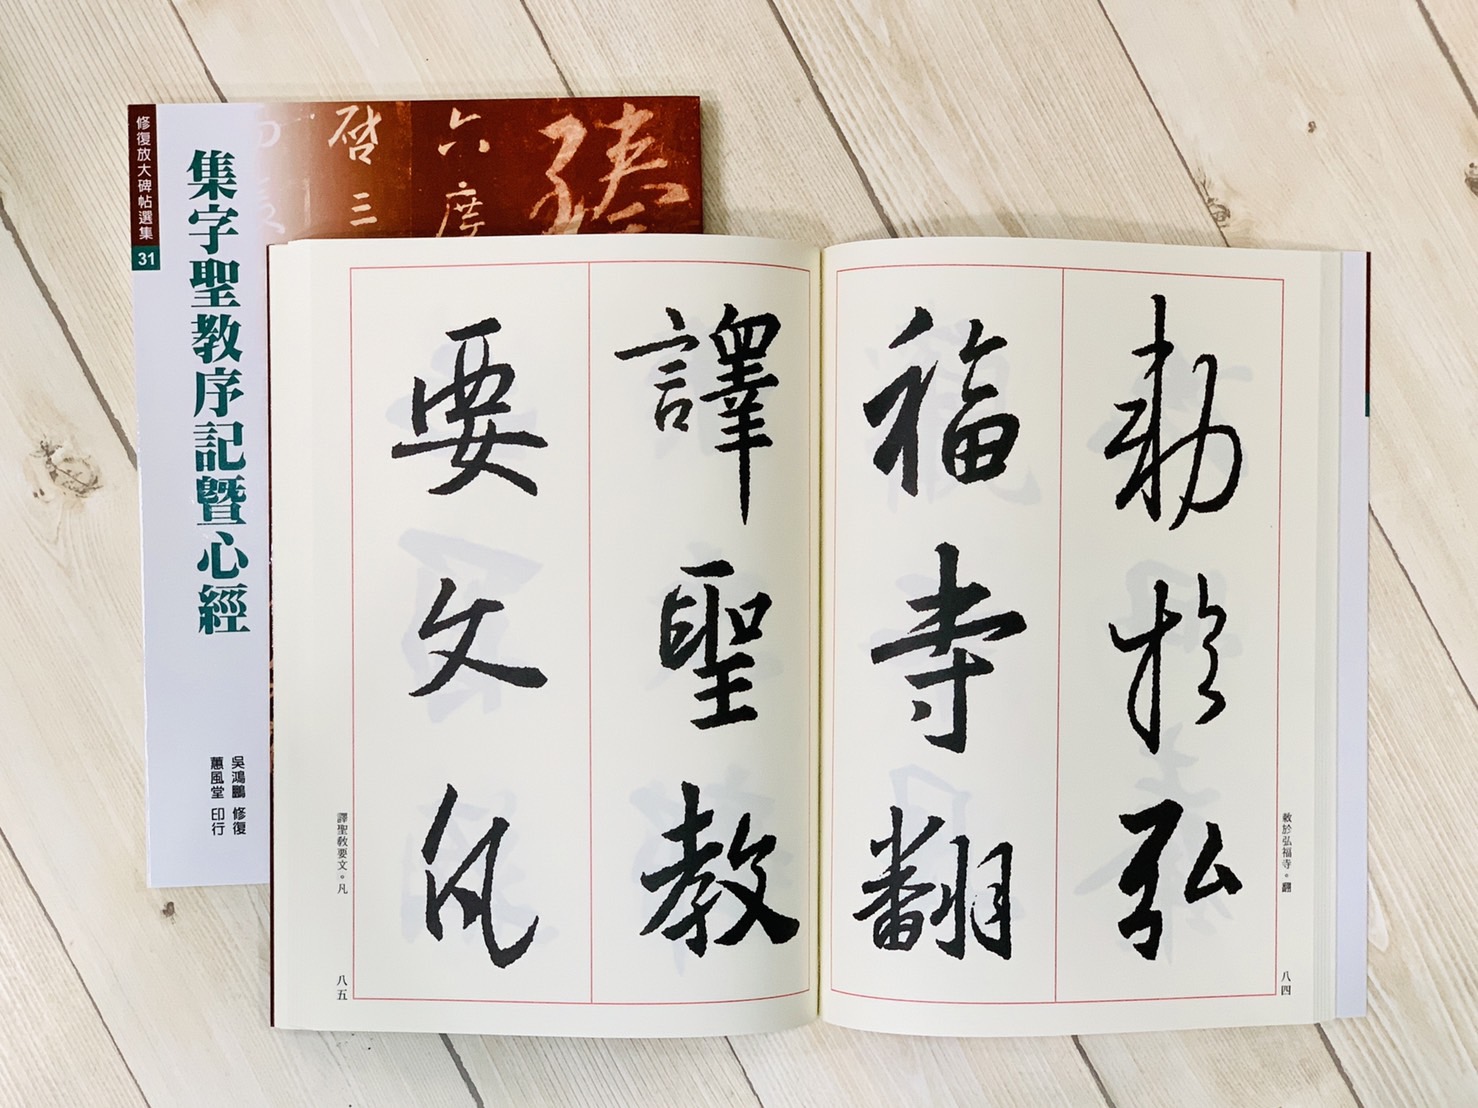 修復放大碑帖選集
31
集字聖教序記暨心經
吳鴻鵬 修復
蕙風堂 印行
啓三
六度
敕於弘
福寺翻
敕於弘福寺。翻
八四
譯聖教
要文凡
譯聖教要文。凡
八五